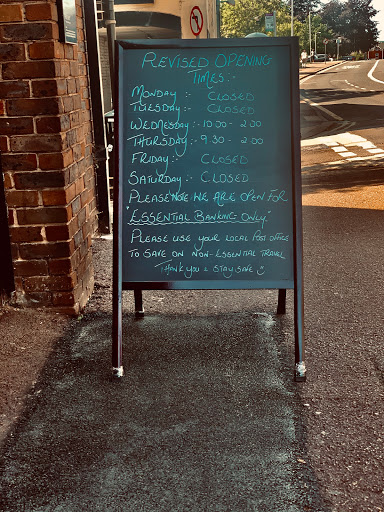 REVISED OPENING
TIMES:-
MONDAY :- CLOSED
TUESDAY :- CLOSED
WEDNESDAY :- 10.00 - 2.00
THURSDAY :- 9.30 - 2.00
FRIDAY :- CLOSED
SATURDAY :- CLOSED
PLEASE NOTE WE ARE OPEN FOR
"ESSENTIAL BANKING ONLY"
PLEASE USE YOUR LOCAL POST OFFICE
TO SAVE ON NON-ESSENTIAL TRAVEL
THANK YOU & STAY SAFE